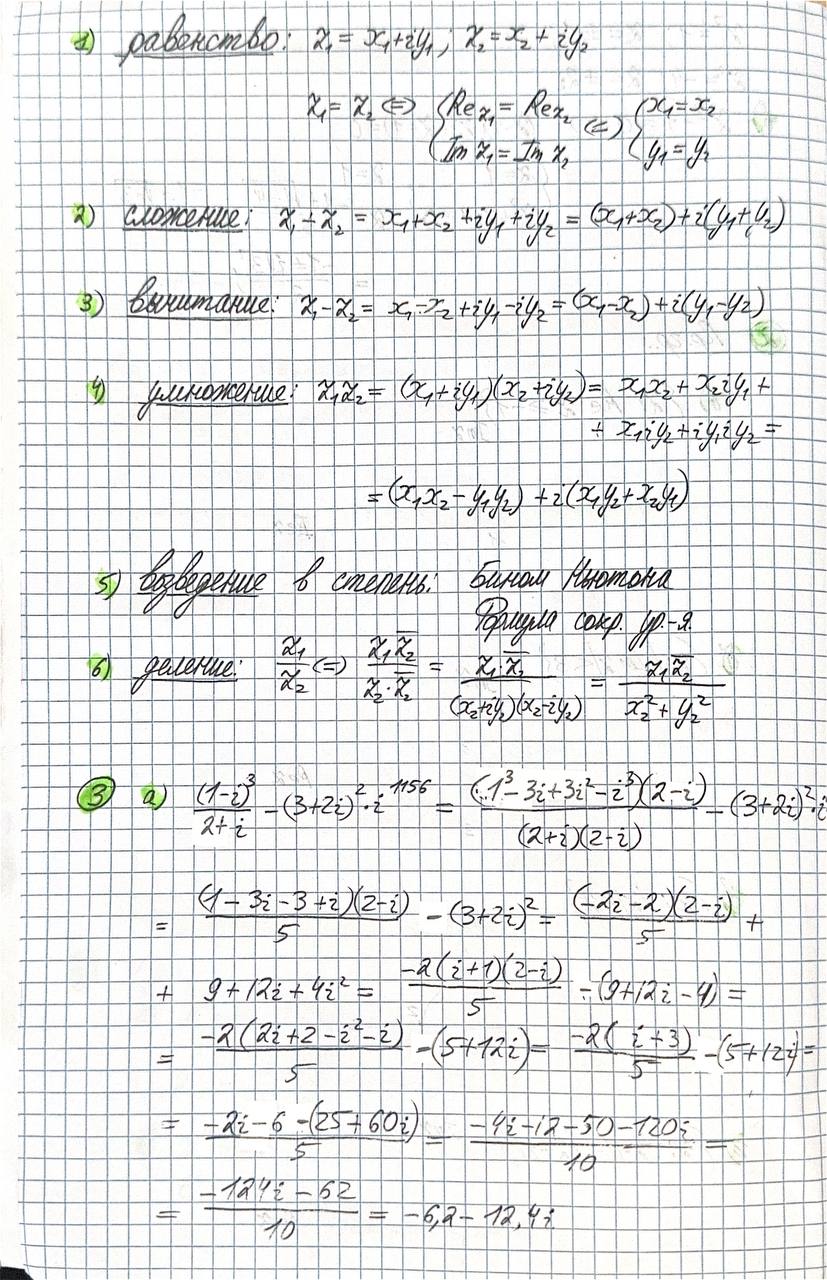 1) равенство: z₁ = x₁+iy₁; z₂ = x₂ + iy₂
z₁ = z₂ <=> { Re z₁ = Re z₂ <=> { x₁ = x₂
Im z₁ = Im z₂ y₁ = y₂
2) сложение: z₁ + z₂ = x₁+x₂ +iy₁ +iy₂ = (x₁+x₂)+i(y₁+y₂)
3) вычитание: z₁ - z₂ = x₁ - x₂ +iy₁ -iy₂ = (x₁-x₂) + i(y₁-y₂)
4) умножение: z₁z₂ = (x₁+iy₁)(x₂+iy₂) = x₁x₂ + x₂iy₁ +
+ x₁iy₂ + iy₁iy₂ =
= (x₁x₂ - y₁y₂) + i(x₁y₂+x₂y₁)
5) возведение в степень: Бином Ньютона
Формула сокр. ур-я.
6) деление: z₁/z₂ <=> z₁z̅₂/(z₂·z̅₂) = z₁·z̅₂/((x₂+iy₂)(x₂-iy₂)) = z₁z̅₂/(x₂² + y₂²)
3 a) (1-i)³/(2+i) - (3+2i)²·i¹¹⁵⁶ = (1³-3i+3i²-i³)(2-i)/((2+i)(2-i)) - (3+2i)²·i
= (1-3i-3+i)(2-i)/5 - (3+2i)² = (-2i-2)(2-i)/5 +
+ 9+12i+4i² = -2(i+1)(2-i)/5 - (9+12i-4) =
= -2(2i+2-i²-i)/5 - (5+12i) = -2(i+3)/5 - (5+12i) =
= (-2i-6-(25+60i))/5 = (-4i-12-50-120i)/10 =
= (-124i-62)/10 = -6,2-12,4i